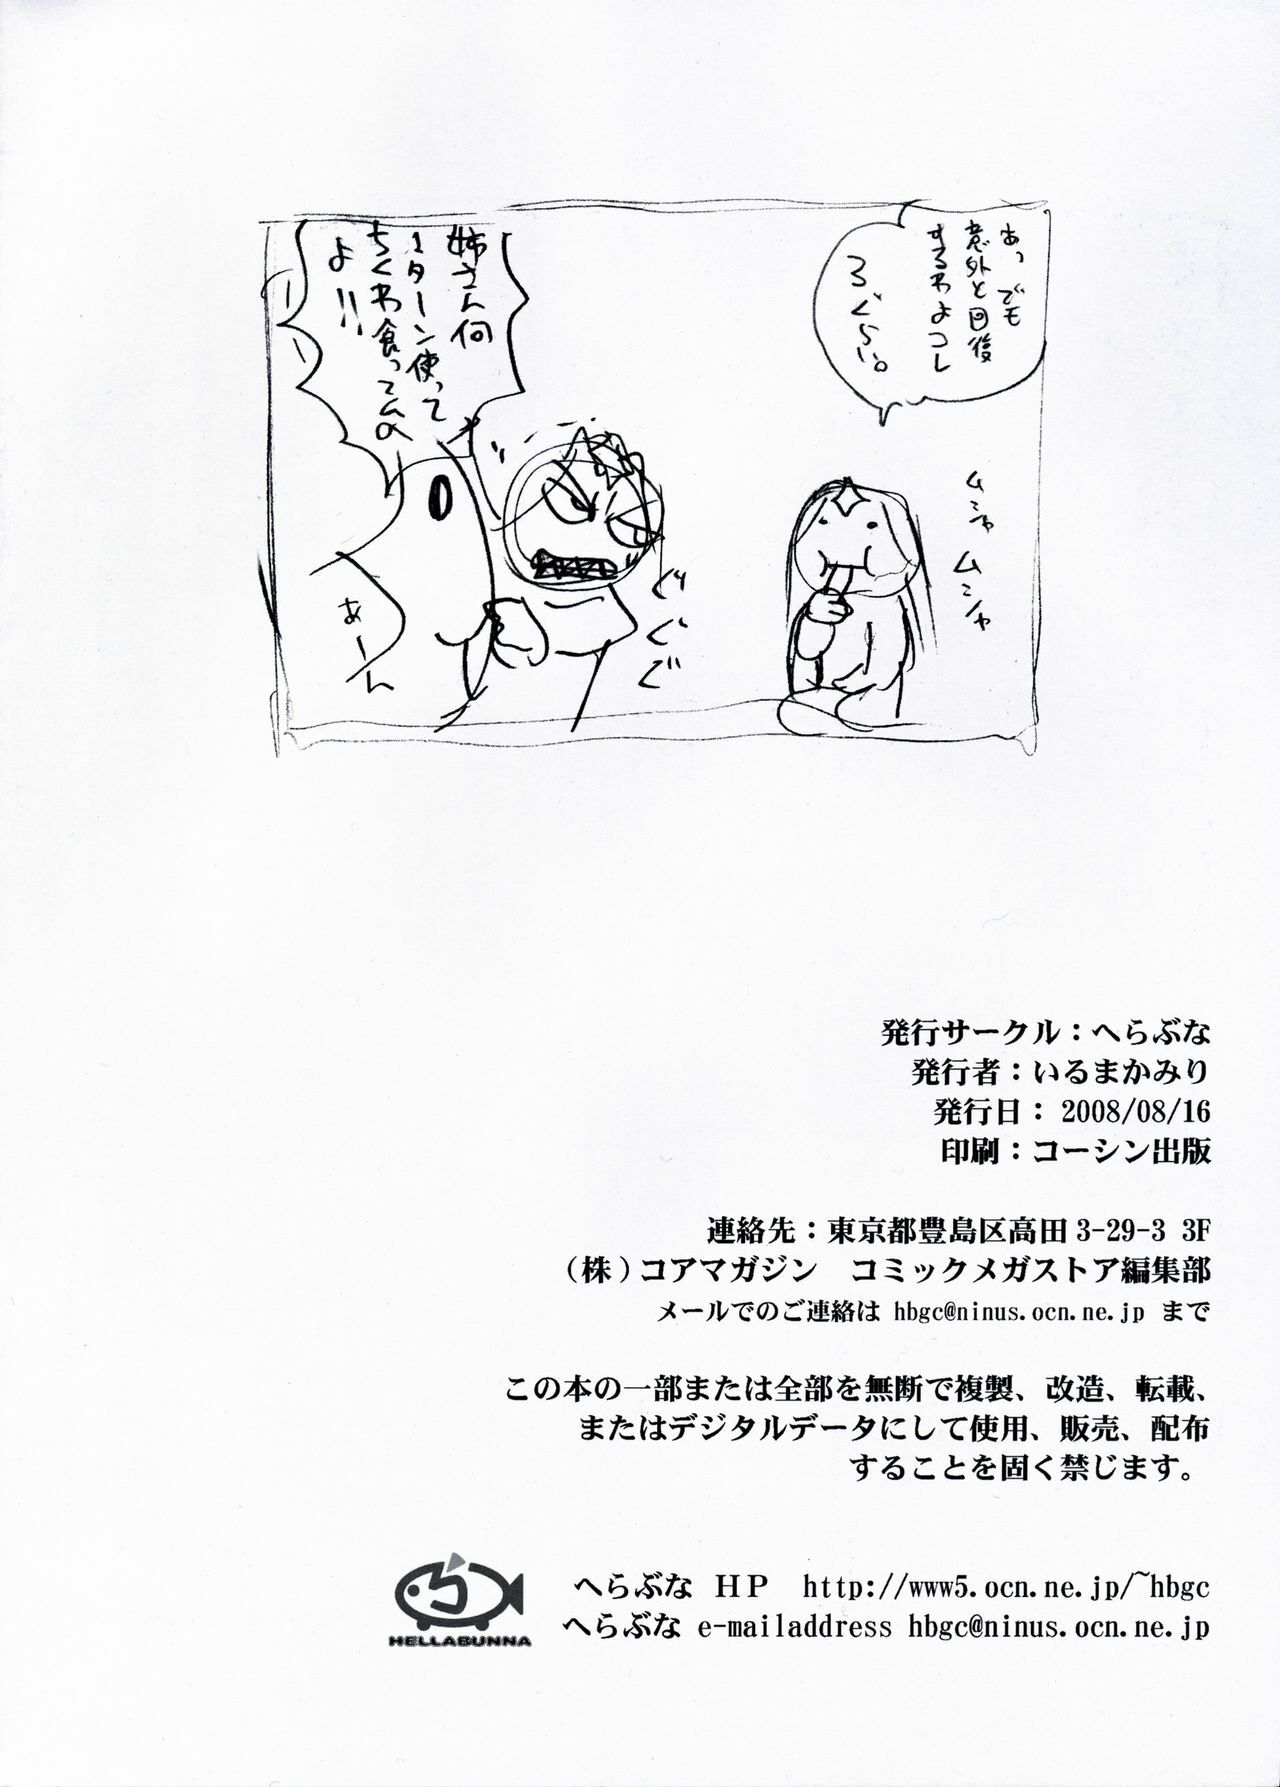 あっでも
意外と回復
するわよコレ
3ぐらい。
ムシャ
ムシャ
姉さん何
1ターン使って
ちくわ食ってんの
よ!!
ぐ
ぐ
ぐ
あーん
発行サークル：へらぶな
発行者：いるまかみり
発行日： 2008/08/16
印刷：コーシン出版
連絡先：東京都豊島区高田 3-29-3 3F
（株）コアマガジン　コミックメガストア編集部
メールでのご連絡は hbgc@ninus.ocn.ne.jp まで
この本の一部または全部を無断で複製、改造、転載、
またはデジタルデータにして使用、販売、配布
することを固く禁じます。
へらぶな ＨＰ　http://www5.ocn.ne.jp/~hbgc
へらぶな e-mailaddress hbgc@ninus.ocn.ne.jp
HELLABUNNA